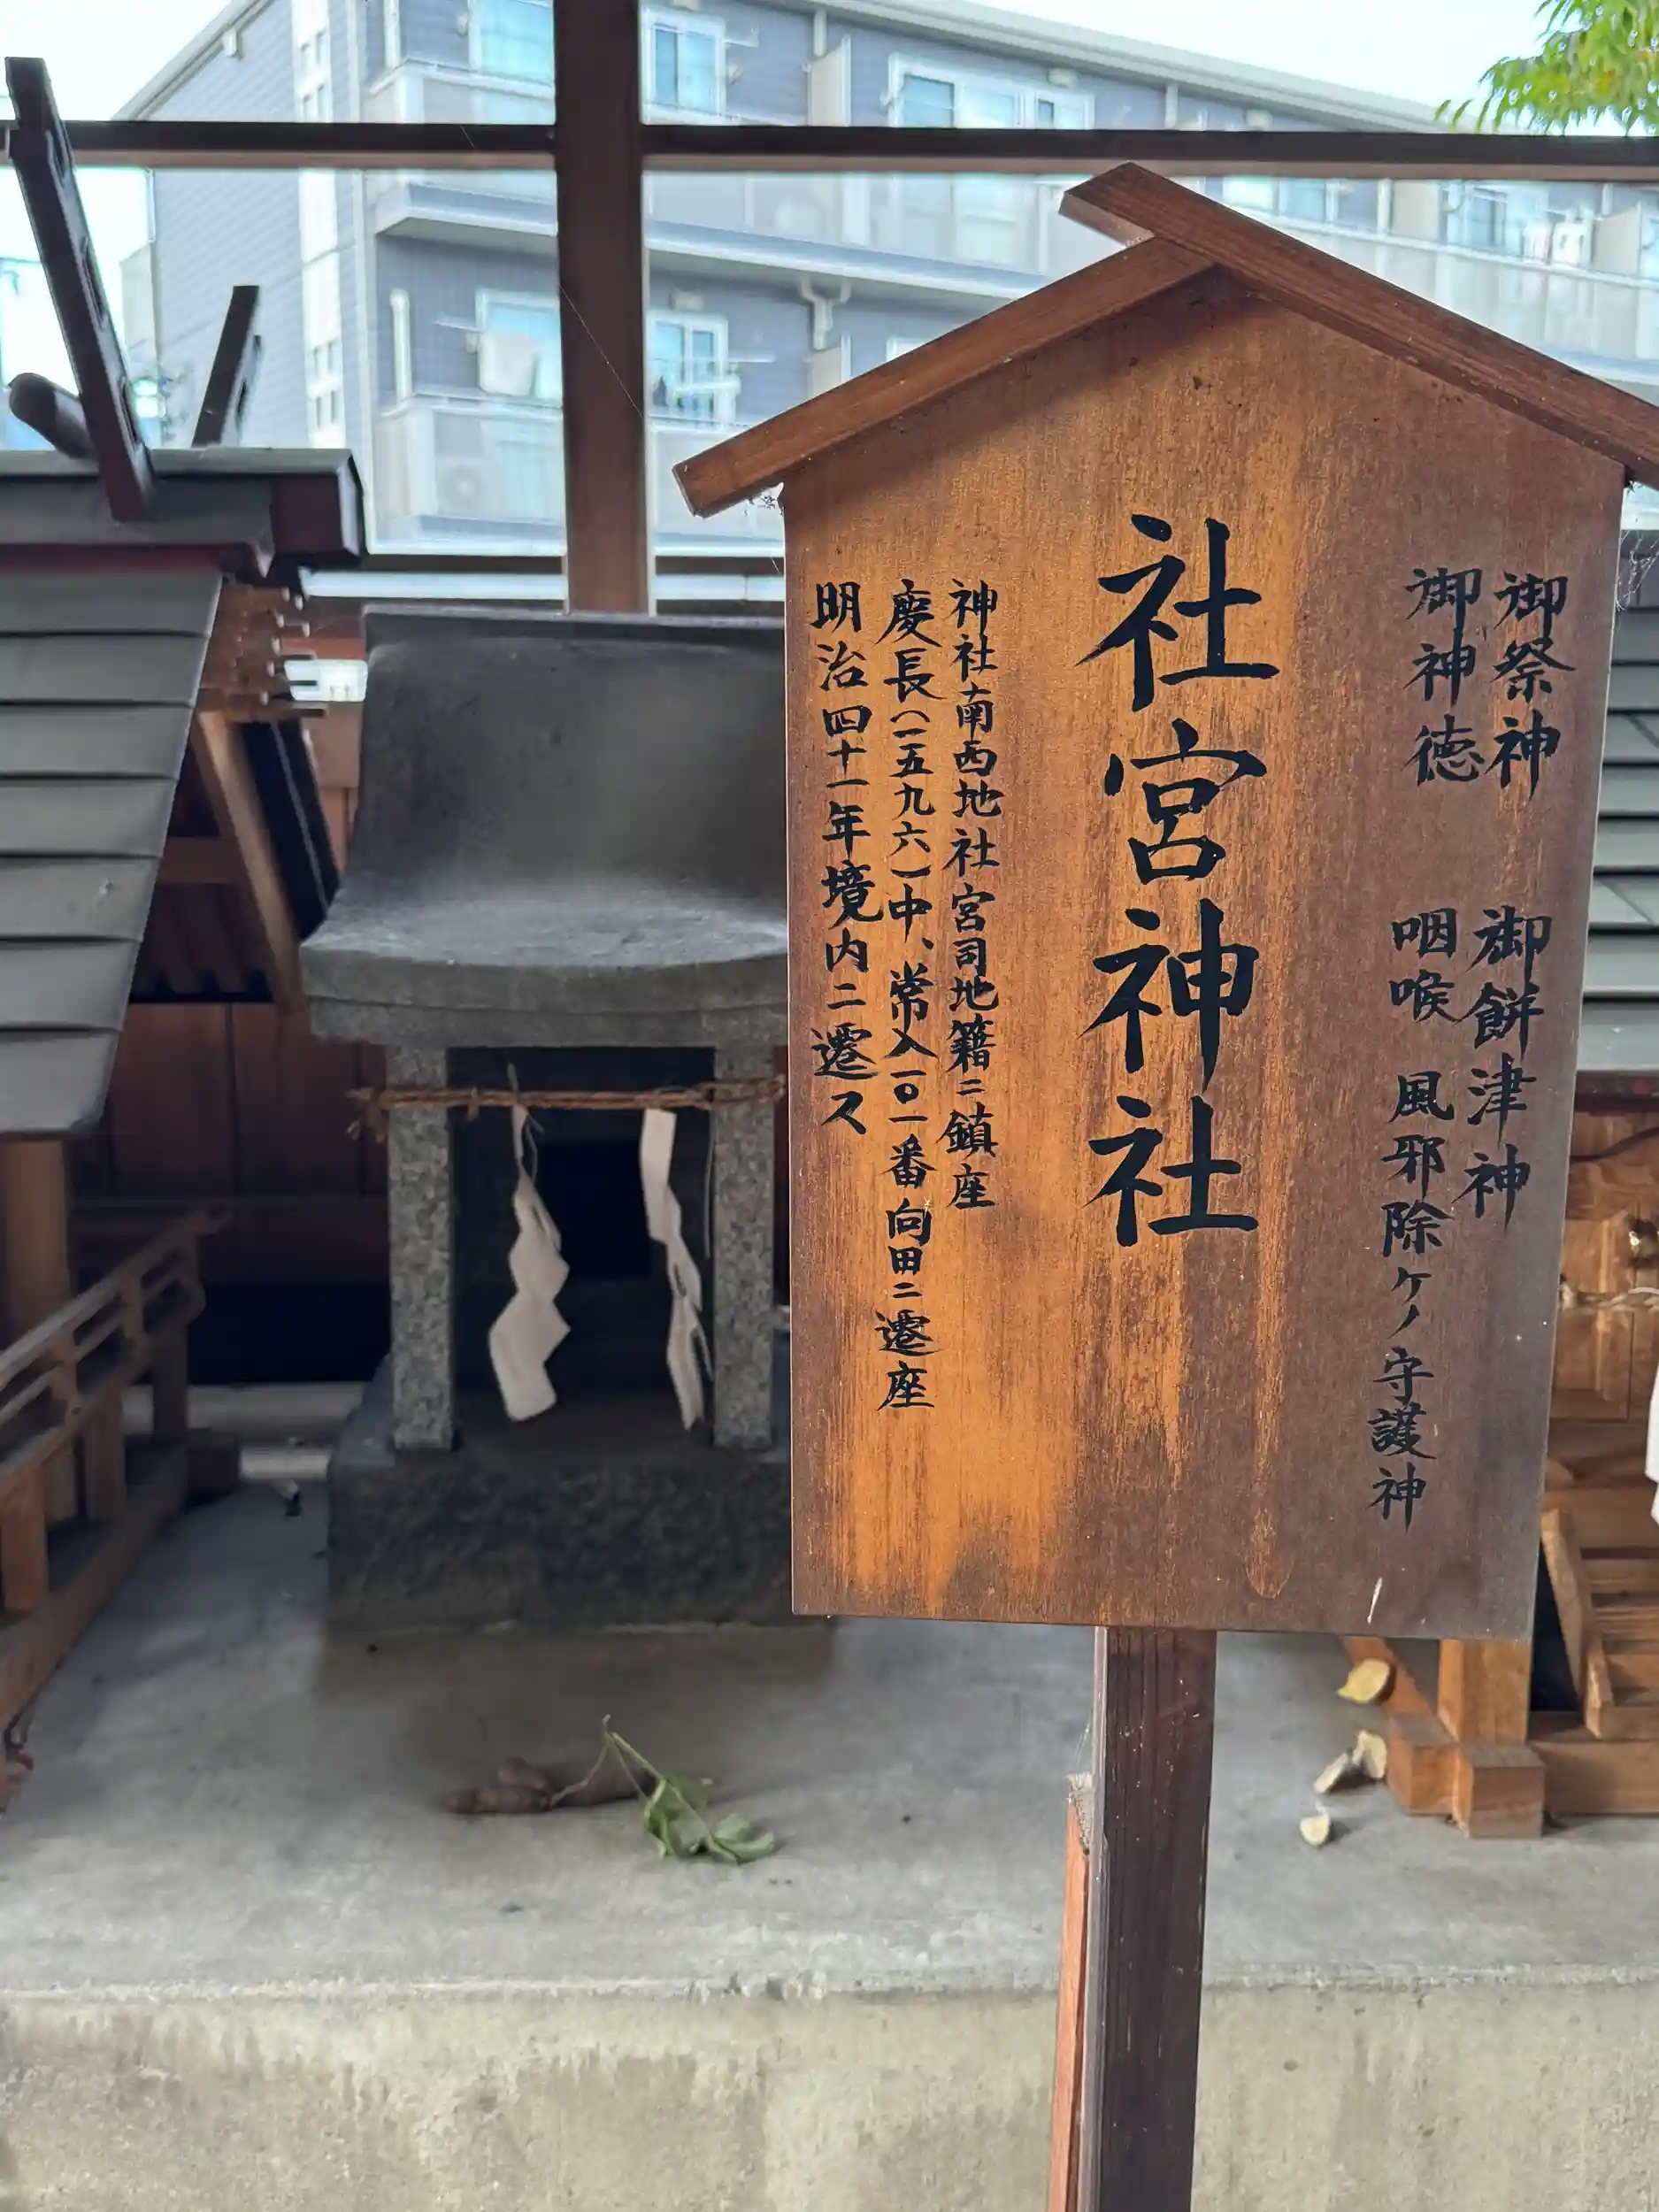 御祭神 御餅津神
御神徳 咽喉 風邪除ケノ守護神
社宮神社
神社南西地社宮司地籍ニ鎮座
慶長(一五九六)中、常入一〇一番向田ニ遷座
明治四十一年境内ニ遷ス